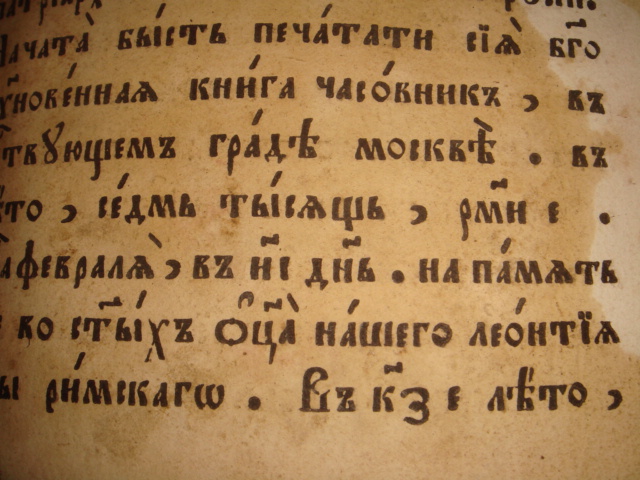 Начата̀ бы́сть печа́тати сїѧ̀ бг҃о
хнове́ннаѧ кни́га часо́вникъ , въ
твꙋющемъ гра́дѣ москвѣ̀ . въ
то , се́дмь ты́сѧщь , рм҃и е .
а февралѧ̀ , въ н҃і дн҃ь . на па́мѧть
во ст҃ы́хъ ѻц҃а̀ на́шего лео́нтїѧ
ы ри́мскагѡ . Въ к҃з е лѣ́то ,